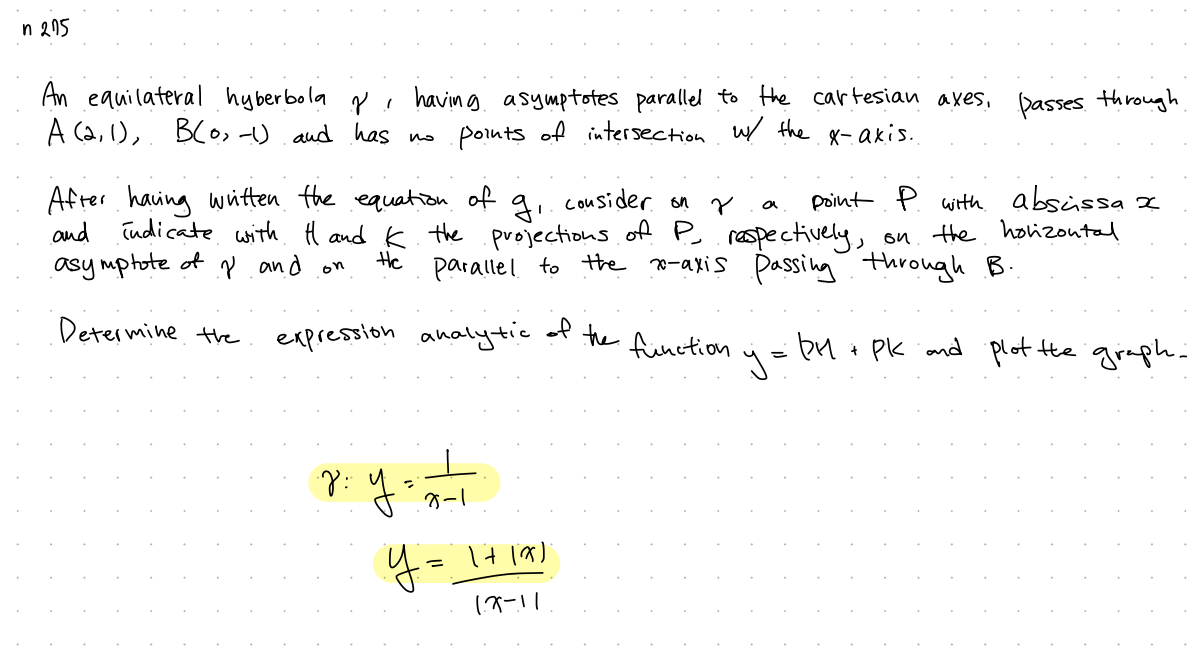 n 275
An equilateral hyberbola γ, having asymptotes parallel to the cartesian axes, passes through
A(2,1), B(0,-1) and has no points of intersection w/ the x-axis.
After having written the equation of g, consider on γ a point P with abscissa x
and indicate with H and K the projections of P, respectively, on the horizontal
asymptote of γ and on the parallel to the x-axis passing through B.
Determine the expression analytic of the function y = PH + PK and plot the graph.
γ: y = 1/(x-1)
y = (1+|x|)/|x-1|